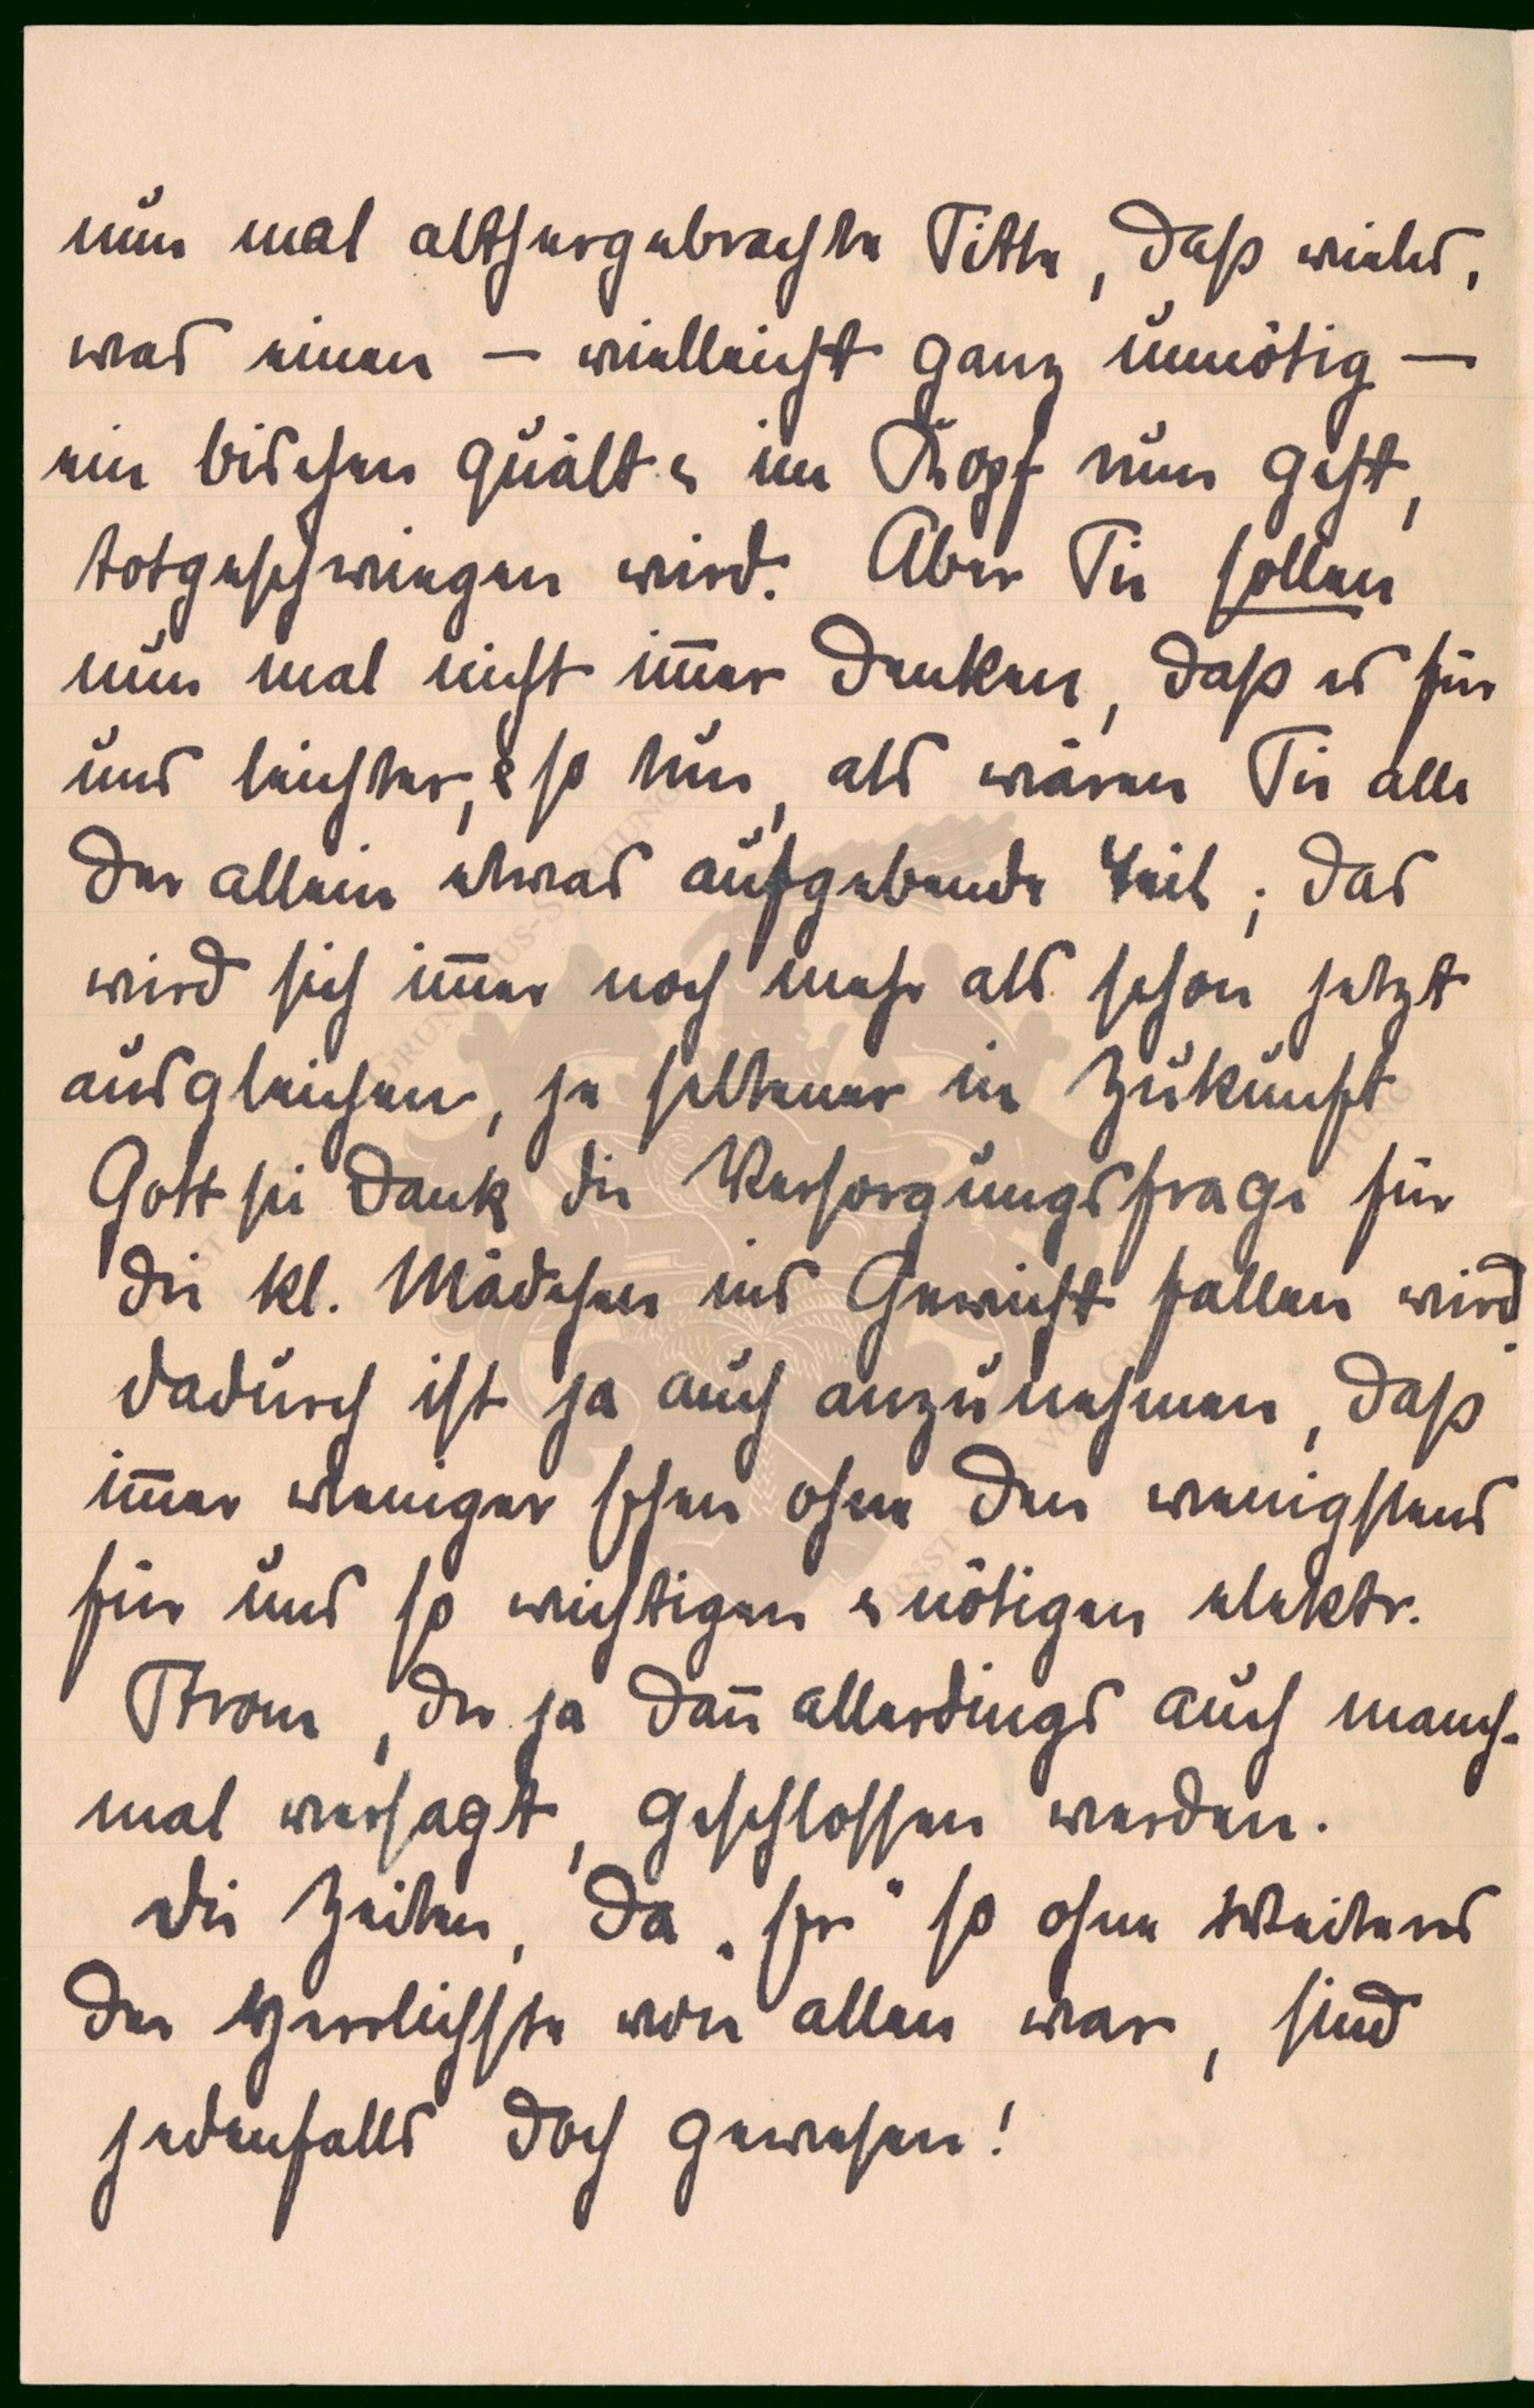 nun mal althergebrachte Sitte, daß vieles,
was einen — vielleicht ganz unnötig —
ein bischen quält & im Kopf rum geht,
totgeschwiegen wird. Aber Sie sollen
nun mal nicht im̄er denken, daß es für
uns leichter, & so tun, als wären Sie alle
der allein etwas aufgebende Teil; das
wird sich im̄er noch mehr als schon jetzt
ausgleichen, je seltener in Zukunft
Gott sei Dank die Versorgungsfrage für
die kl. Mädchen ins Gewicht fallen wird.
dadurch ist ja auch anzunehmen, daß
im̄er weniger Ehen ohne den wenigstens
für uns so wichtigen & nötigen elektr.
Strom, der ja dan̄ allerdings auch manch-
mal versagt, geschlossen werden.
Die Zeiten, da „Er" so ohne Weiteres
der Herrlichste von allen war, sind
jedenfalls doch gewesen!
ERNST VON GRUNELIUS-STIFTUNG